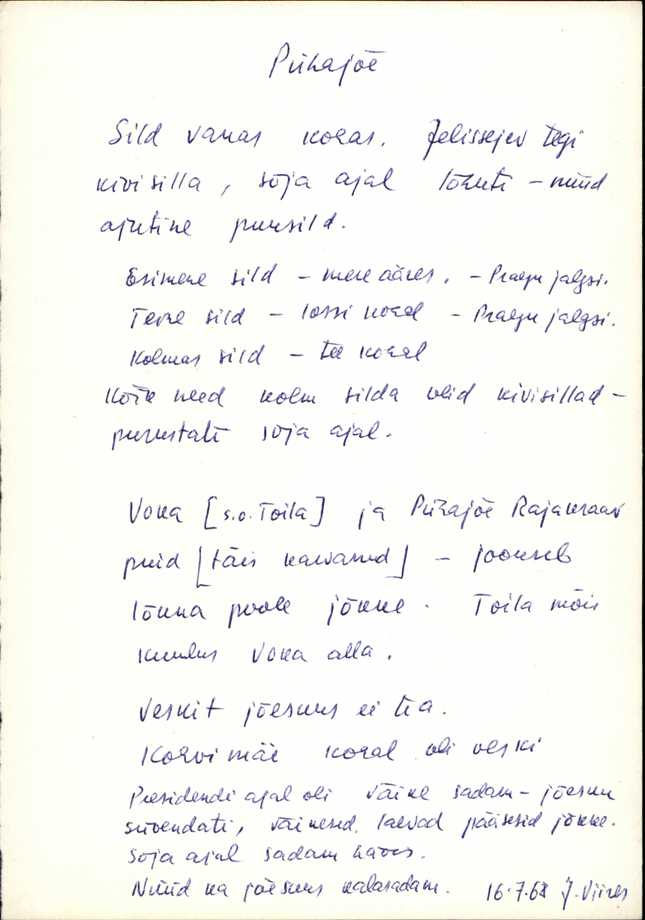 Pühajõe
Sild vanas kohas. Jelissejev tegi
kivisilla, sõja ajal lõhuti – nüüd
ajutine puusild.
Esimene sild – mere ääres. – Praegu jalgsi.
Teine sild – lossi kohal – Praegu jalgsi.
Kolmas sild – tee kohal
Kõik need kolm silda olid kivisillad –
purustati sõja ajal.
Voka [s.o. Toila] ja Pühajõe Rajakraav
puid [täis kasvanud] – jookseb
lõuna poole jõkke. Toila mõis
kuulus Voka alla.
Veskit jõesuus ei tea.
Kõrvi mäe kohal oli veski
Presidendi ajal oli väike sadam – jõesuu
süvendati, väikesed laevad pääsesid jõkke.
Sõja ajal sadam hävis.
Nüüd ka jõesuus kalasadam. 16.7.68 J. Viires